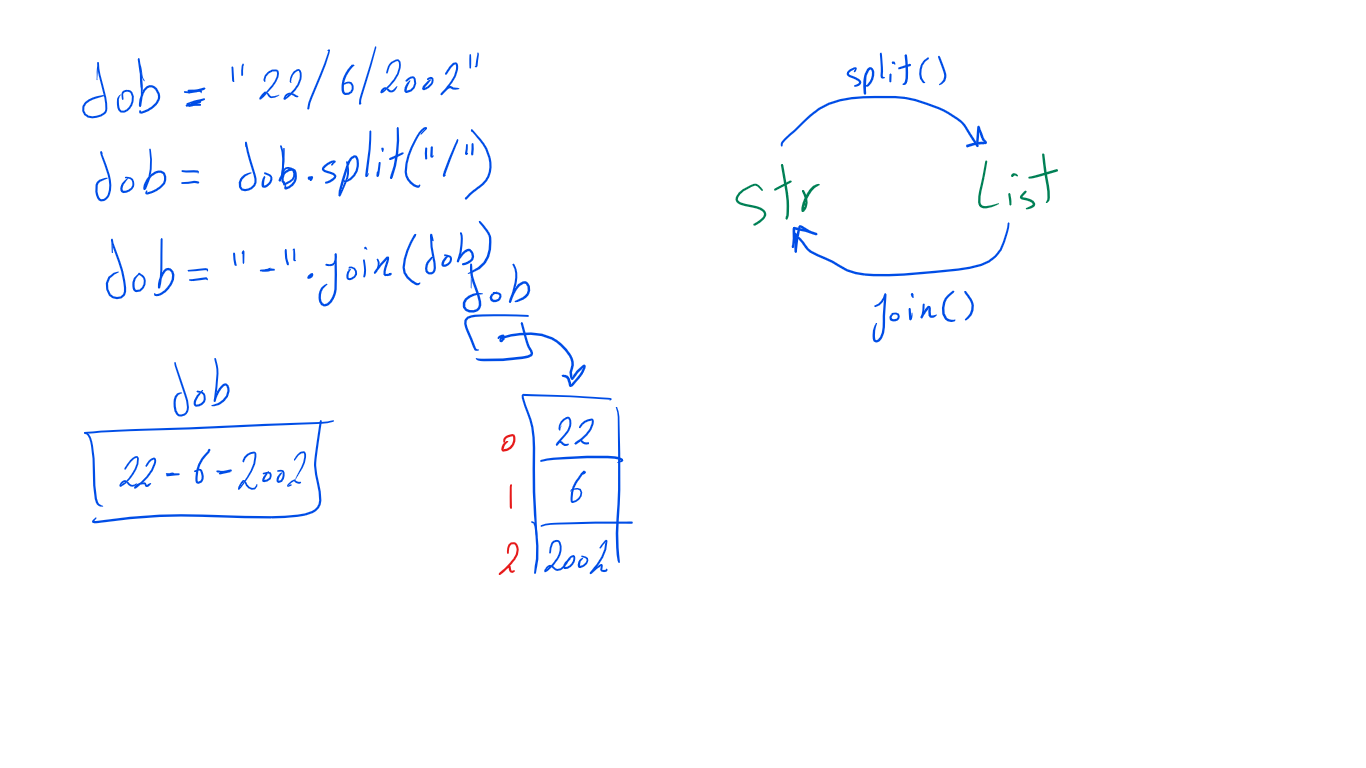 dob = "22/6/2002"
dob = dob.split("/")
dob = "-".join(dob)
dob
22-6-2002
dob
0 22
1 6
2 2002
split()
str List
join()